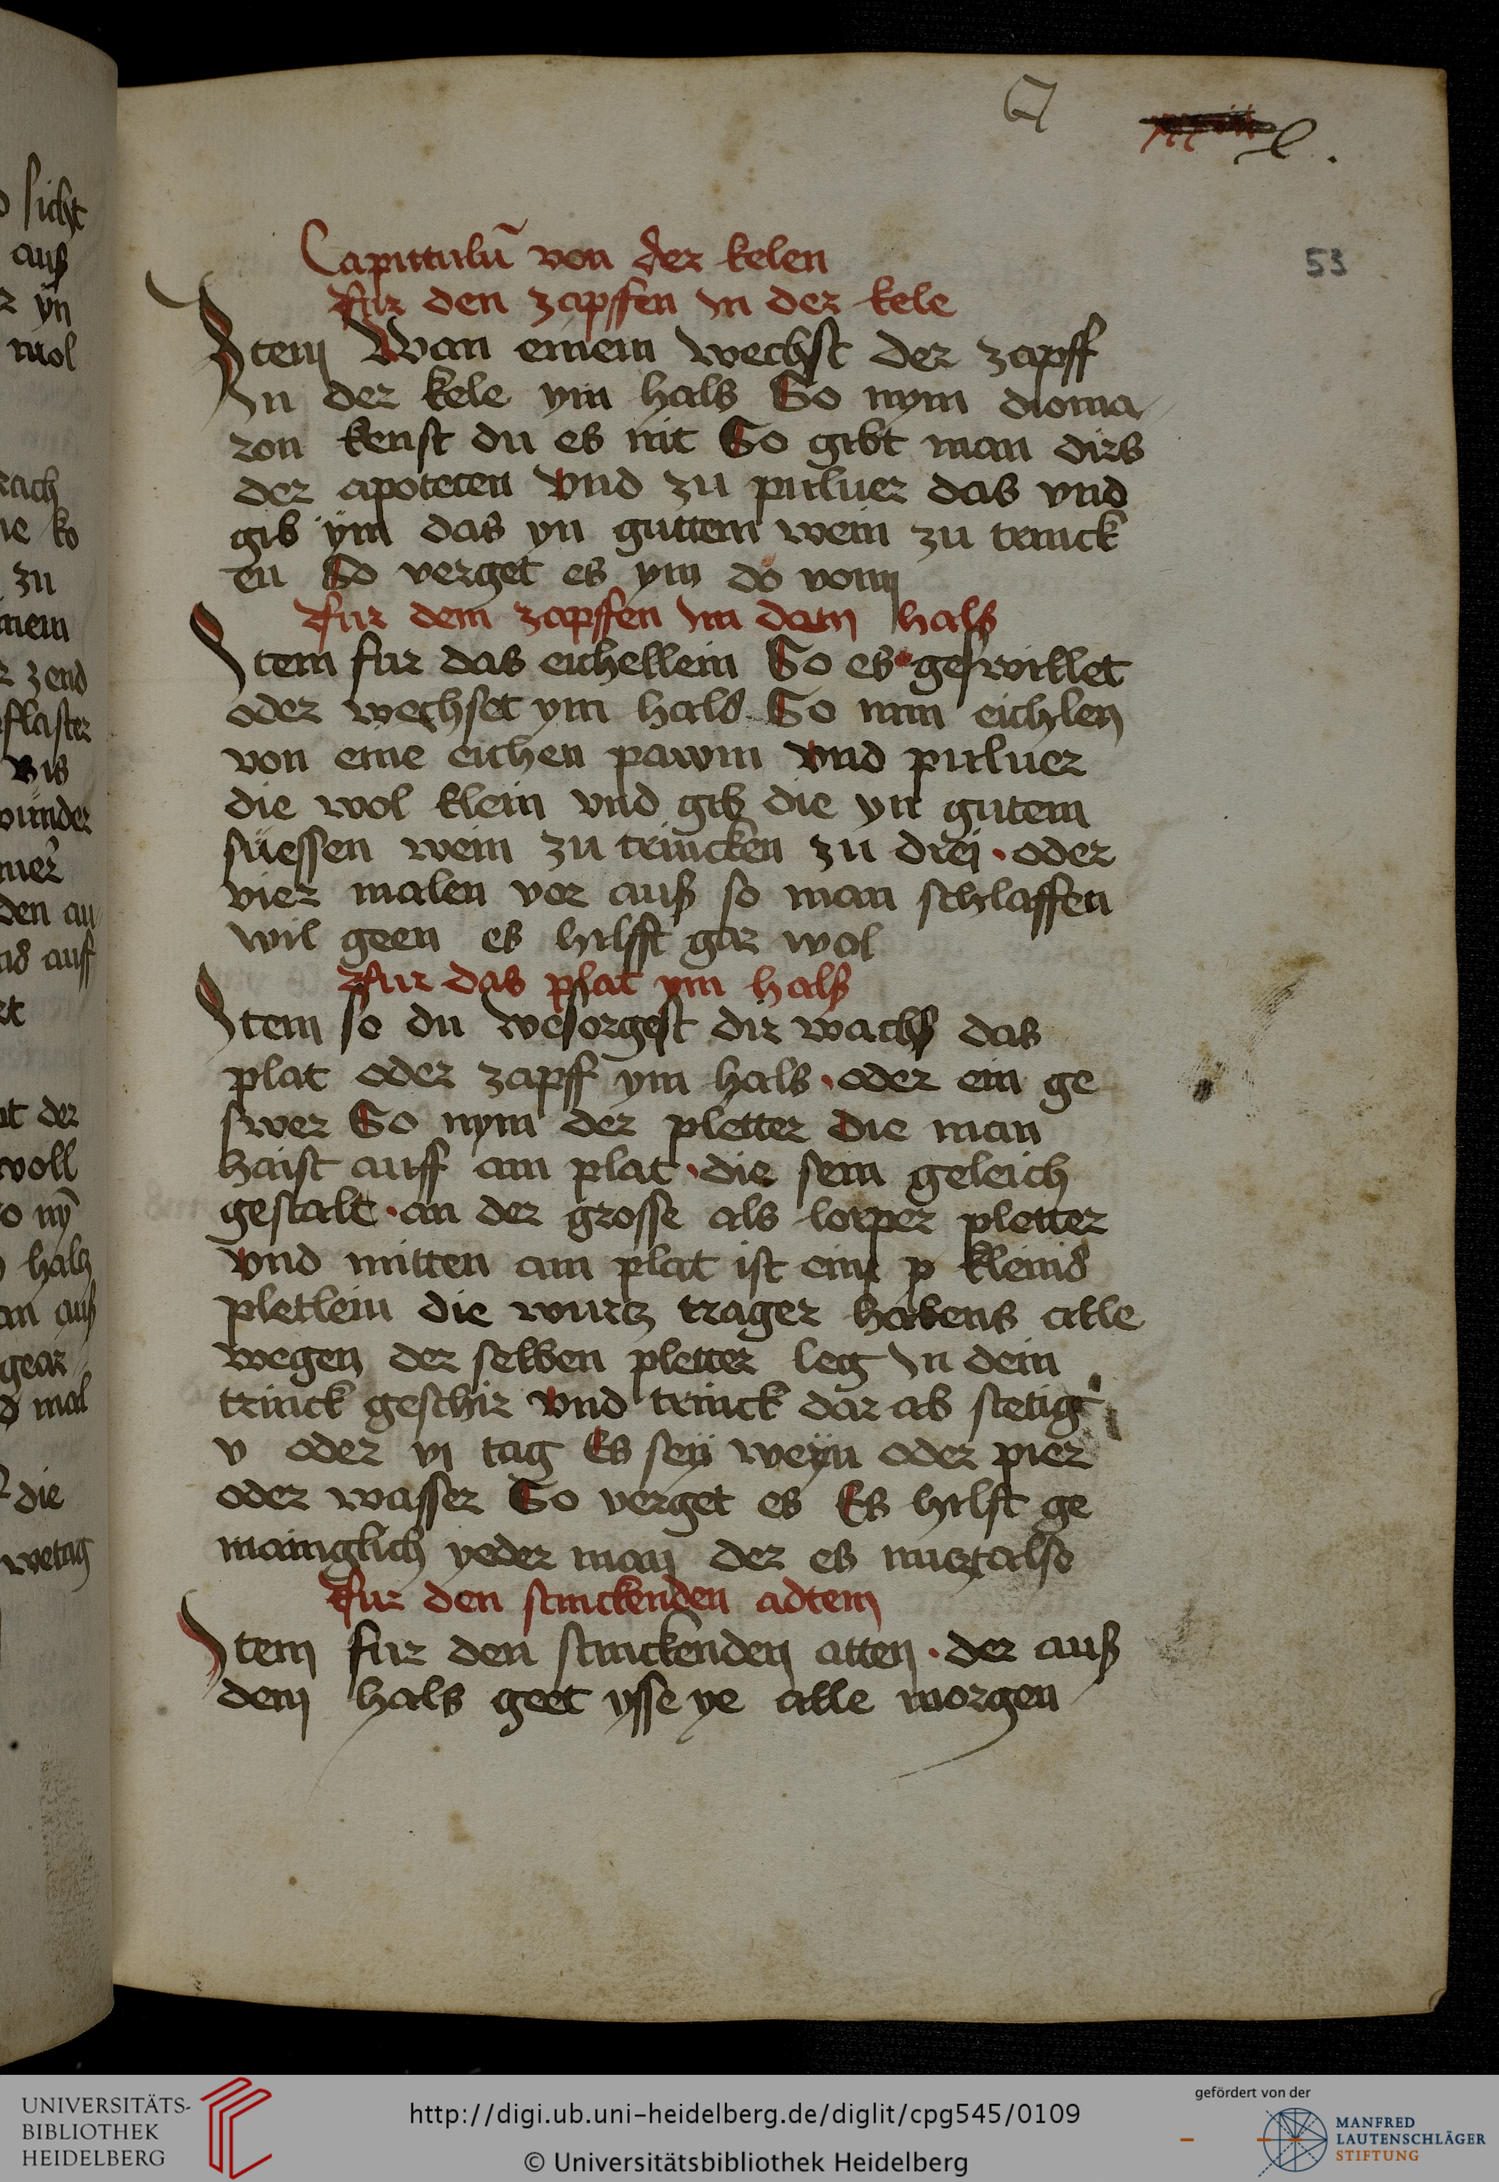 l.
53
Capittulū von der kelen
Fur den zapffen In der kele
Item Wan einem wechst der zapff
In der kele ym hals So nym dioma
ron kenst du es nit So gibt man dirs
der apotecen vnd zu puluer das vnd
gib ym das yn guttem wein zu trinck
en So verget es ym do vom
Fur dem zapffen Im dem hals
Item fur das eichellein So es geswillet
oder wechset ym hals So nim eichlen
von eine eichen pawm vnd puluer
die wol klein vnd gib die yn gutem
suessen wein zu trincken zu drej · oder
vier malen vor auß so man schlaffen
wil geen es hilfft gar wol
Fur das plat ym halß
Item so du wesorgest dir wachs das
plat oder zapff ym hals · oder ein ge
swer So nym der pletter die man
haist auff am plat · die sein geleich
gestalt · an der grosse als lorper pletter
vnd mitten am plat ist ein kleins
pletlein die wurtz trager habens alle
wegen der selben pletter leg In dein
trinck geschir vnd trinck dar ab stetig
v oder vj tag Es sey weyn oder pier
oder wasser So verget es Es hilft ge
mainglich yeder man der es nutzt also
Fur den stinckenden adtem
Item fur den stinckenden atten · der auß
dem hals geet ysse ye alle morgen
UNIVERSITÄTS-
BIBLIOTHEK
HEIDELBERG
http://digi.ub.uni-heidelberg.de/diglit/cpg545/0109
© Universitätsbibliothek Heidelberg
gefördert von der
MANFRED
LAUTENSCHLÄGER
STIFTUNG